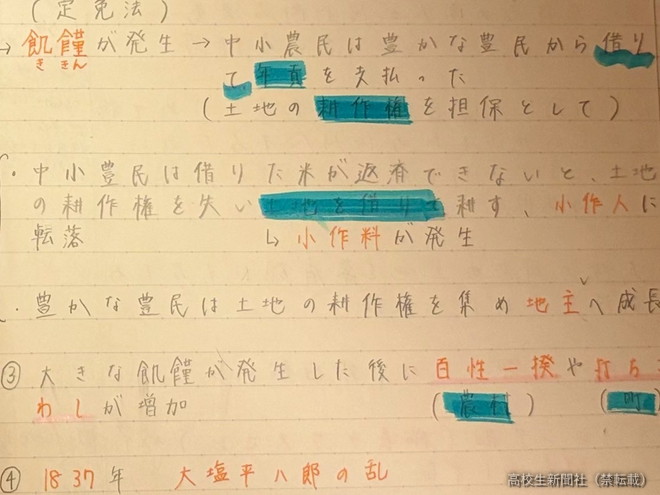 (定免法)
→飢饉が発生→中小農民は豊かな豊民から借り
ききん
て年貢を支払った
(土地の耕作権を担保として)
・中小豊民は借りた米が返済できないと、土地
の耕作権を失い土地を借りて耕す、小作人に
転落 ↳小作料が発生
・豊かな豊民は土地の耕作権を集め地主へ成長
③大きな飢饉が発生した後に百性一揆や打ち
わしが増加 (農村) (町
④1837年 大塩平八郎の乱
高校生新聞社(禁転載)